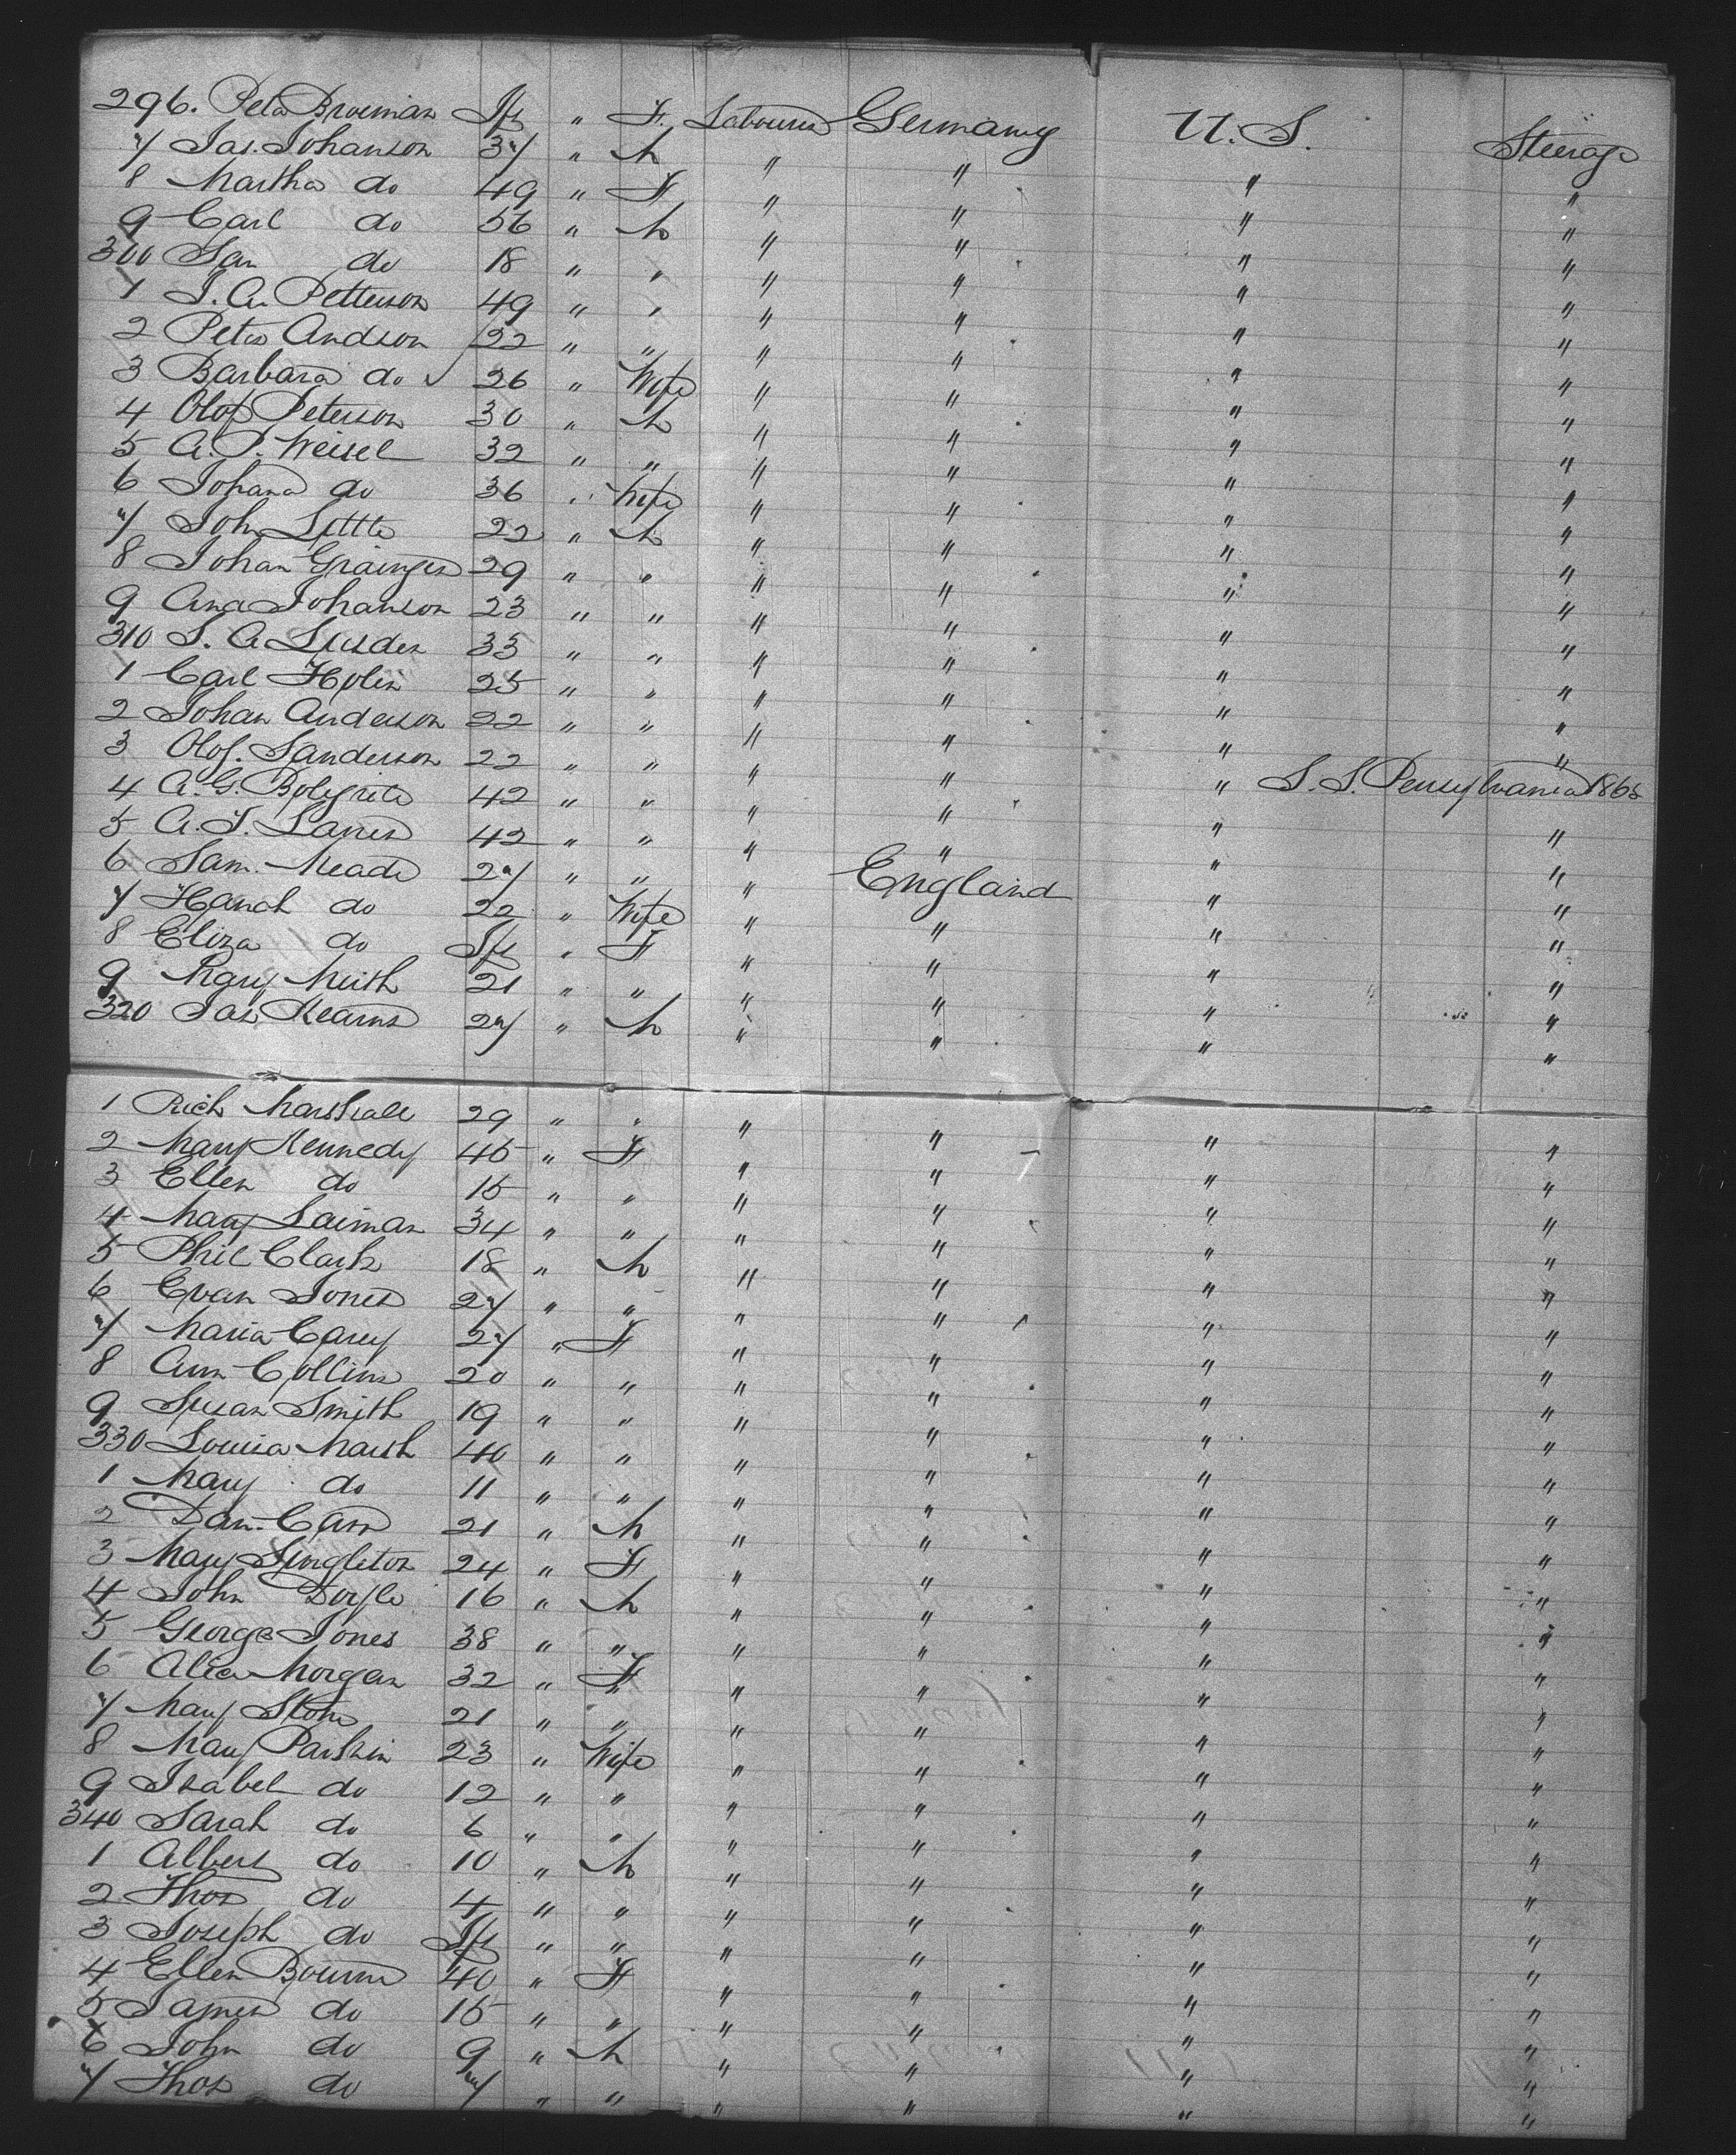 296. Peter Broeman Inf " F. Labourer Germany U.S. Steerage
7 Jas. Johanson 37 " M " " " "
8 Martha do 49 " F " " " "
9 Carl do 56 " M " " " "
300 Jan do 18 " " " " " "
1 J. A. Petterson 49 " " " " " "
2 Peter Andson 22 " " " " " "
3 Barbara do 26 " Wife " " " "
4 Olof Peterson 30 " M " " " "
5 A. P. Weisel 32 " " " " " "
6 Johana do 36 " Wife " " " "
7 John Little 22 " M " " " "
8 Johan Grainger 29 " " " " " "
9 Ana Johanson 23 " " " " " "
310 S. A. 33 " " " " " "
1 Carl Holin 25 " " " " " "
2 Johan Anderson 22 " " " " " "
3 Olof. Sanderson 22 " " " " " "
4 A. G. 42 " " " " " S. S. Pensylvania 1868
5 A. J. 42 " " " " " "
6 Sam. Meade 27 " " " England " "
7 Hanah do 22 " Wife " " " "
8 Eliza do Inf " F " " " "
9 Mary 21 " " " " " "
320 Jas Kearns 27 " M " " " "
1 Rich Marshall 29 " " " " " "
2 Mary Kennedy 45 " F " " " "
3 Ellen do 15 " " " " " "
4 Mary Laiman 34 " " " " " "
5 Phil Clark 18 " M " " " "
6 Evan Jones 27 " " " " " "
7 Maria Carey 27 " F " " " "
8 Ann Collins 20 " " " " " "
9 Susan Smith 19 " " " " " "
330 Louisa Marsh 40 " " " " " "
1 Mary do 11 " " " " " "
2 Dan. Cass 21 " M " " " "
3 Mary Singleton 24 " F " " " "
4 John Doyle 16 " M " " " "
5 George Jones 38 " " " " " "
6 Alice Morgan 32 " F " " " "
7 Mary Stone 21 " " " " " "
8 Mary Parkin 23 " Wife " " " "
9 Isabel do 12 " " " " " "
340 Sarah do 6 " " " " " "
1 Albert do 10 " M " " " "
2 Thos do 4 " " " " " "
3 Joseph do Inf " " " " " "
4 Ellen Bourne 40 " F " " " "
5 James do 15 " " " " " "
6 John do 9 " M " " " "
7 Thos do 7 " " " " " "